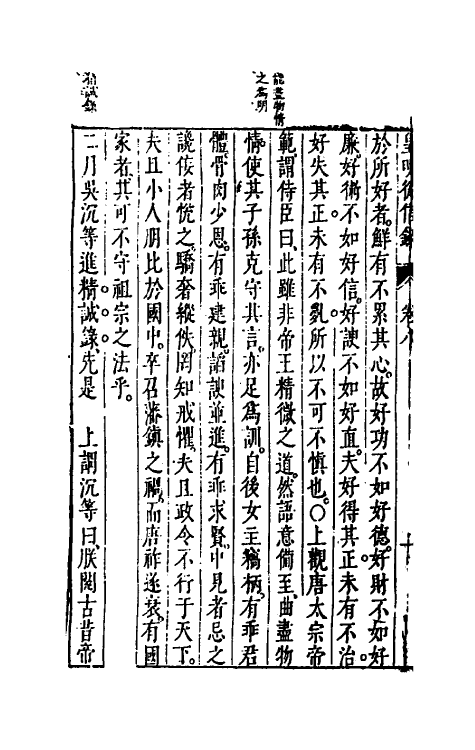 皇明從信錄 卷八
於所好者鮮有不累其心故好功不如好德好財不如好
廉好術不如好信好諛不如好直夫好得其正未有不治
好失其正未有不亂所以不可不慎也○上觀唐太宗帝
範謂侍臣曰此雖非帝王精微之道然語意備至曲盡物
情使其子孫克守其言亦足爲訓自後女主竊柄有乖君
體骨肉少恩有乖建親諂諛並進有乖求賢中見者忌之
讒佞者恍之驕奢縱佚罔知戒懼夫且政令不行于天下
夫且小人朋比於國中卒召藩鎮之禍而唐祚遂衰有國
家者其可不守祖宗之法乎
二月吳沉等進精誠錄先是 上謂沉等曰朕閱古昔帝
能盡物情
之爲明
精誠錄